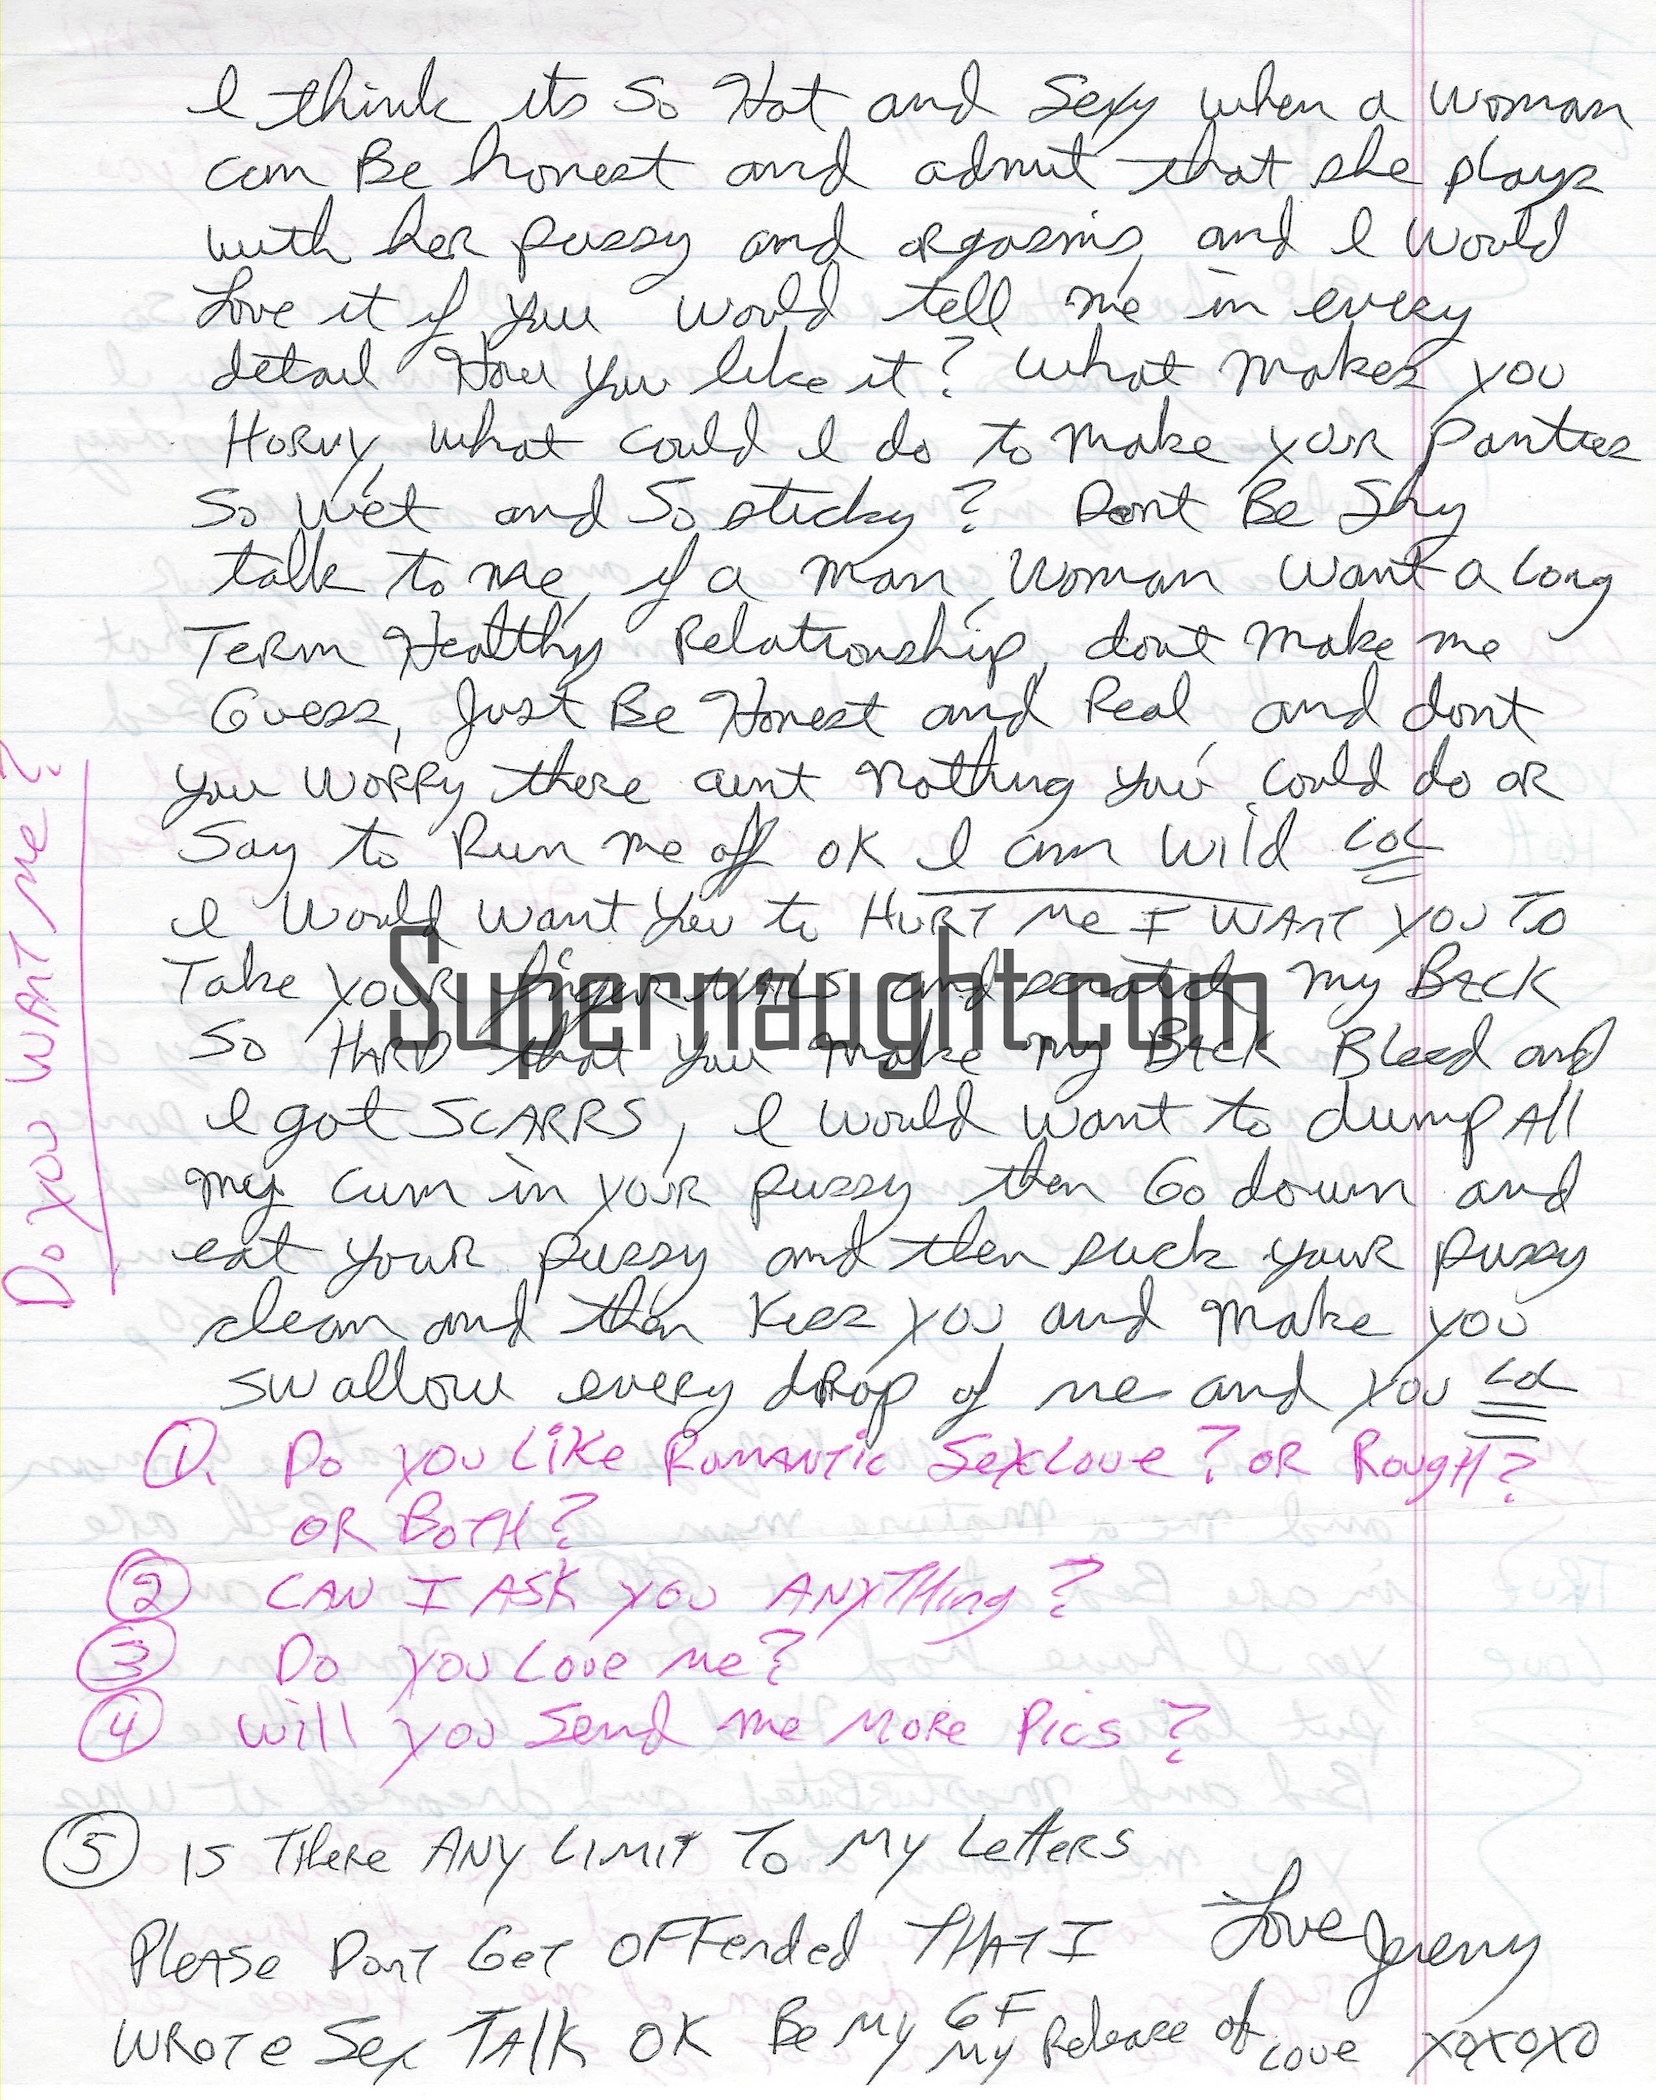 I think its So Hot and Sexy when a woman
can Be honest and admit that she plays
with her pussy and orgasms, and I would
Love it if you would tell me in every
detail How you like it? what makes you
HORNY, what could I do to make your panties
So wet and So sticky? Dont Be Shy
talk to me, if a man, woman want a Long
Term Healthy Relationship, dont make me
Guess, Just Be Honest and Real, and dont
you worry there aint nothing you could do or
Say to Run me off OK I am wild LOL
I would want you to HURT Me I WANT YOU TO
Take YOUR finger NAILS and scratch my BACK
So HARD that you make my BACK Bleed and
I got SCARRS, I would want to dump All
my cum in your pussy then Go down and
eat your pussy and then suck your pussy
clean and then Kiss you and make you
swallow every drop of me and you LOL
Do you WANT me?
Supernaught.com
1. Do you Like Romantic Sex Love? OR Rough?
OR BOTH?
2 CAN I ASK you ANYTHing?
3 Do you Love Me?
4 Will you Send me More Pics?
5 IS THere ANY LIMIT To My Letters
Please Dont Get OFFended THAT I
Love Jeremy
WROTe Sex TAlk OK Be My GF
My Release of Love XOXOXO